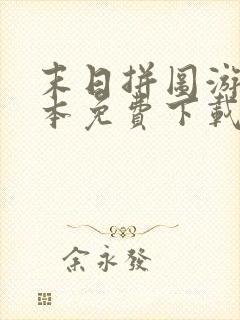 末日拼图游
本免费下载
余永發